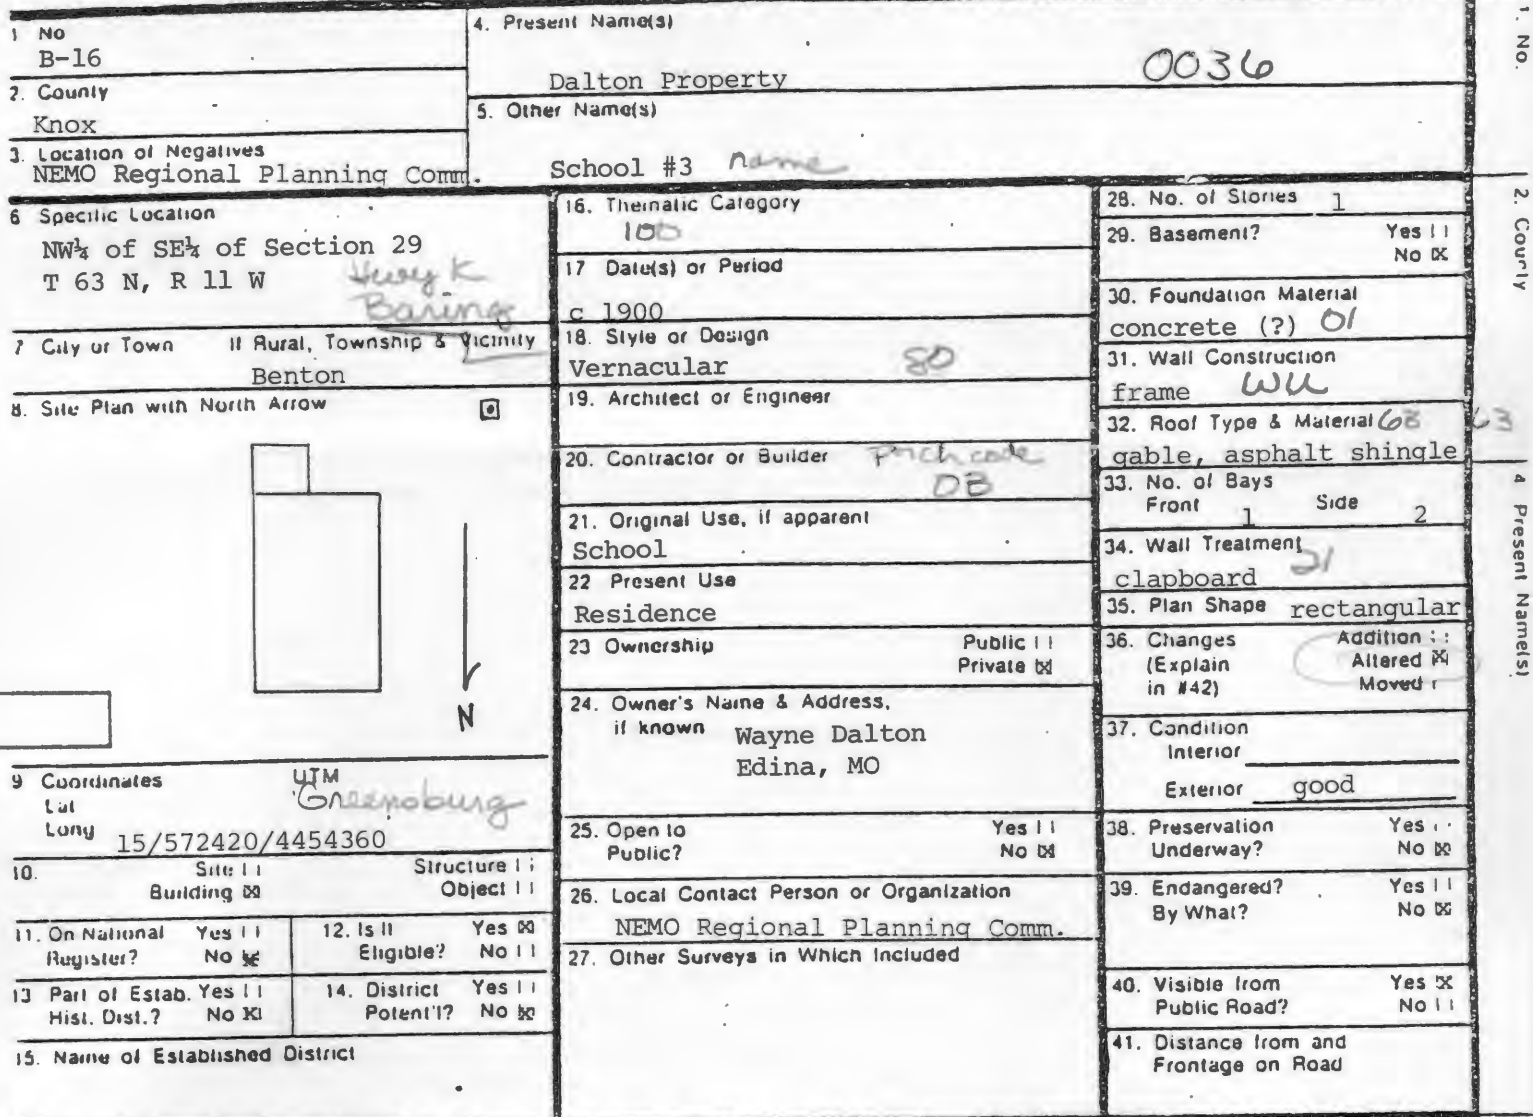 1 No
B-16
2. County
Knox
3. Location of Negatives
NEMO Regional Planning Comm.
4. Present Name(s)
0036
Dalton Property
5. Other Name(s)
School #3 name
6 Specific Location
NW¼ of SE¼ of Section 29
T 63 N, R 11 W
Baring
7 City or Town If Rural, Township & Vicinity
Benton
8. Site Plan with North Arrow
N
9 Coordinates UTM
Lat Greensburg
Long 15/572420/4454360
10. Site | | Structure | |
Building ☒ Object | |
11. On National Yes | |
Register? No ☒
12. Is It Yes ☒
Eligible? No | |
13 Part of Estab. Yes | |
Hist. Dist.? No ☒
14. District Yes | |
Potent'l? No ☒
15. Name of Established District
16. Thematic Category
100
17 Date(s) or Period
c 1900
18. Style or Design
Vernacular 80
19. Architect or Engineer
20. Contractor or Builder Porch code
OB
21. Original Use, if apparent
School
22 Present Use
Residence
23 Ownership Public | |
Private ☒
24. Owner's Name & Address,
if known Wayne Dalton
Edina, MO
25. Open to Yes | |
Public? No ☒
26. Local Contact Person or Organization
NEMO Regional Planning Comm.
27. Other Surveys in Which Included
28. No. of Stories 1
29. Basement? Yes | |
No ☒
30. Foundation Material
concrete (?) 01
31. Wall Construction
frame WU
32. Roof Type & Material 63 63
gable, asphalt shingle
33. No. of Bays
Front 1 Side 2
34. Wall Treatment
clapboard 21
35. Plan Shape rectangular
36. Changes Addition | |
(Explain Altered ☒
in #42) Moved
37. Condition
Interior
Exterior good
38. Preservation Yes
Underway? No ☒
39. Endangered? Yes | |
By What? No ☒
40. Visible from Yes ☒
Public Road? No | |
41. Distance from and
Frontage on Road
1. No.
2. County
4 Present Name(s)